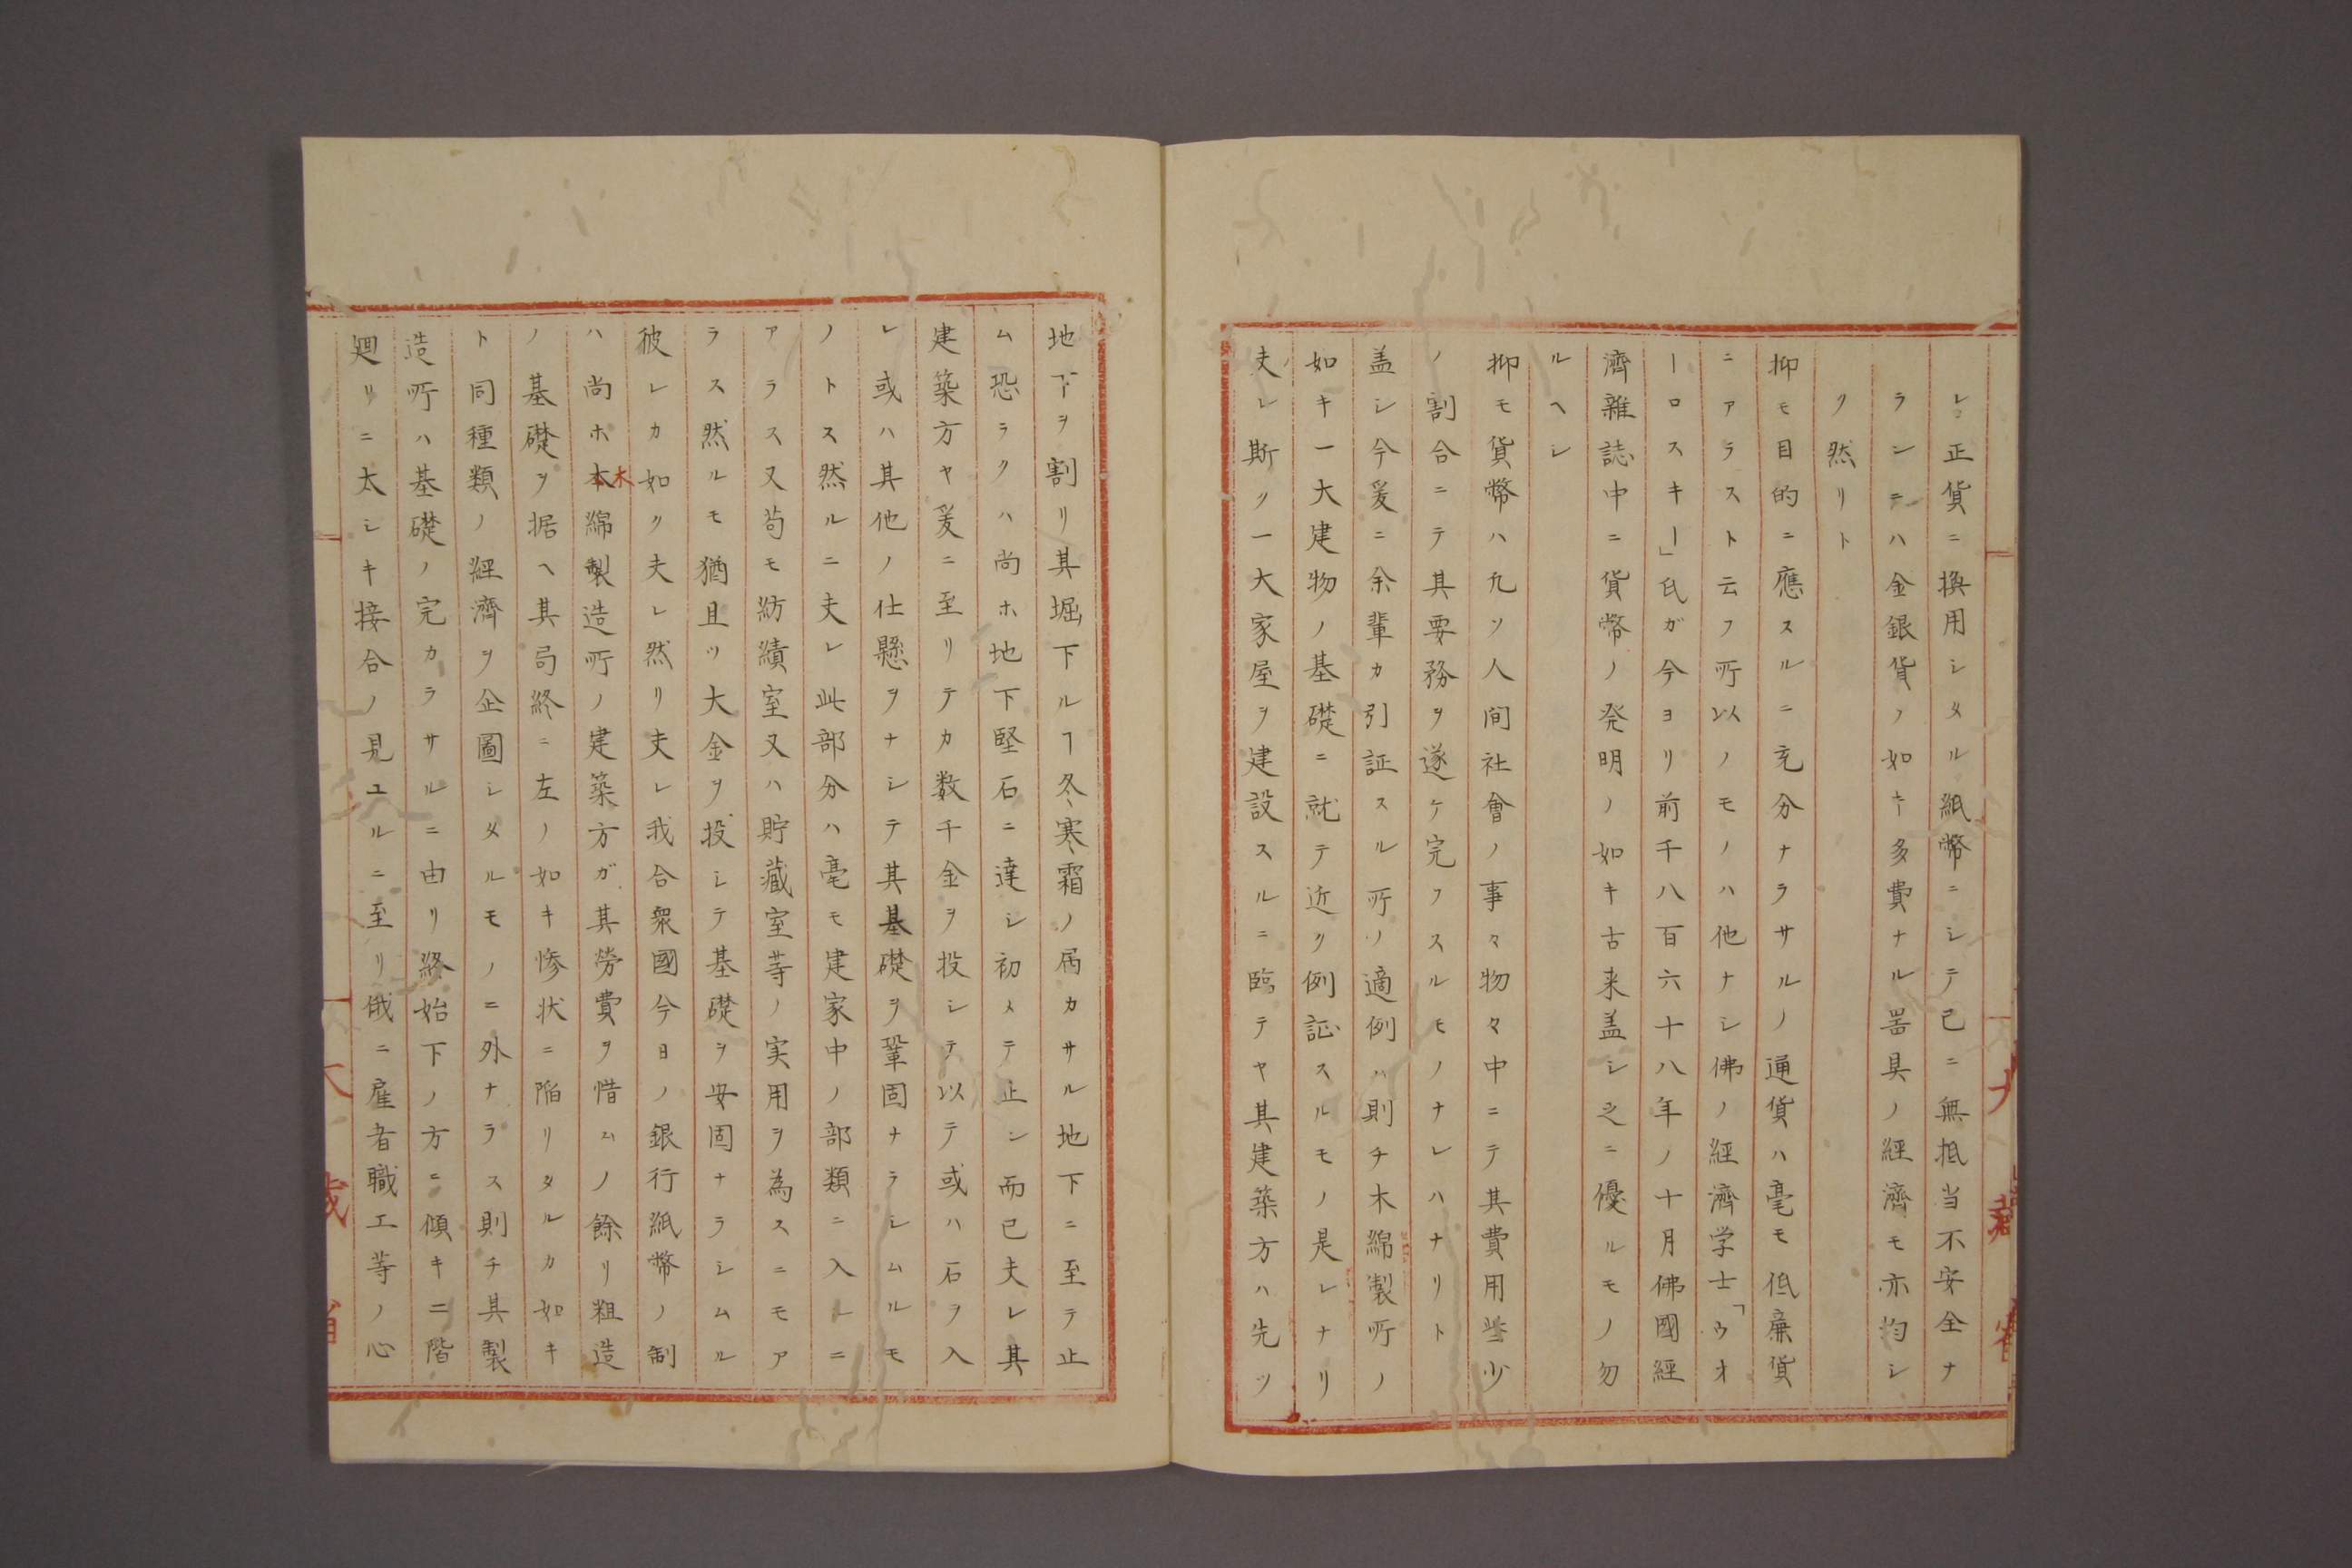 レ正貨ニ換用シタル紙幣ニシテ已ニ無抵当不安全ナ
ランニハ金銀貨ノ如キ多費ナル噐具ノ經濟モ亦均シ
ク然リト
抑モ目的ニ應スルニ充分ナラサルノ通貨ハ毫モ低廉貨
ニアラスト云フ所以ノモノハ他ナシ佛ノ經濟学士「ウオ
ーロスキー」氏ガ今ヨリ前千八百六十八年ノ十月佛國經
濟雜誌中ニ貨幣ノ発明ノ如キ古来盖シ之ニ優ルモノ勿
ルヘシ
抑モ貨幣ハ凡ソ人间社會ノ事々物々中ニテ其費用些少
ノ割合ニテ其要務ヲ遂ケ完フスルモノナレハナリト
盖シ今爰ニ余輩カ引証スル所ノ適例ハ則チ木綿製所ノ
如キ一大建物ノ基礎ニ就テ近ク例証スルモノ是レナリ
夫レ斯ク一大家屋ヲ建設スルニ臨テヤ其建築方ハ先ツ
地下ヲ割リ其堀下ルヿ冬寒霜ノ届カサル地下ニ至テ止
ム恐ラクハ尚ホ地下堅石ニ達シ初メテ止ン而已夫レ其
建築方ヤ爰ニ至リテカ数千金ヲ投シテ以テ或ハ石ヲ入
レ或ハ其他ノ仕懸ヲナシテ其基礎ヲ鞏固ナラシムルモ
ノトス然ルニ夫レ此部分ハ毫モ建家中ノ部類ニ入レニ
アラス又苟モ紡績室又ハ貯藏室等ノ実用ヲ為スニモア
ラス然ルモ猶且ツ大金ヲ投シテ基礎ヲ安固ナラシムル
彼レカ如ク夫レ然リ夫レ我合衆國今日ノ銀行紙幣ノ制
ハ尚ホ本木綿製造所ノ建築方ガ其勞費ヲ惜ムノ餘リ粗造
ノ基礎ヲ据ヘ其局終ニ左ノ如キ惨状ニ陥リタルカ如キ
ト同種類ノ經濟ヲ企圖シタルモノニ外ナラス則チ其製
造所ハ基礎ノ完カラサルニ由リ終始下ノ方ニ傾キ二階
廻リニ太シキ接合ノ見ユルニ至リ俄ニ雇者職工等ノ心
大藏省